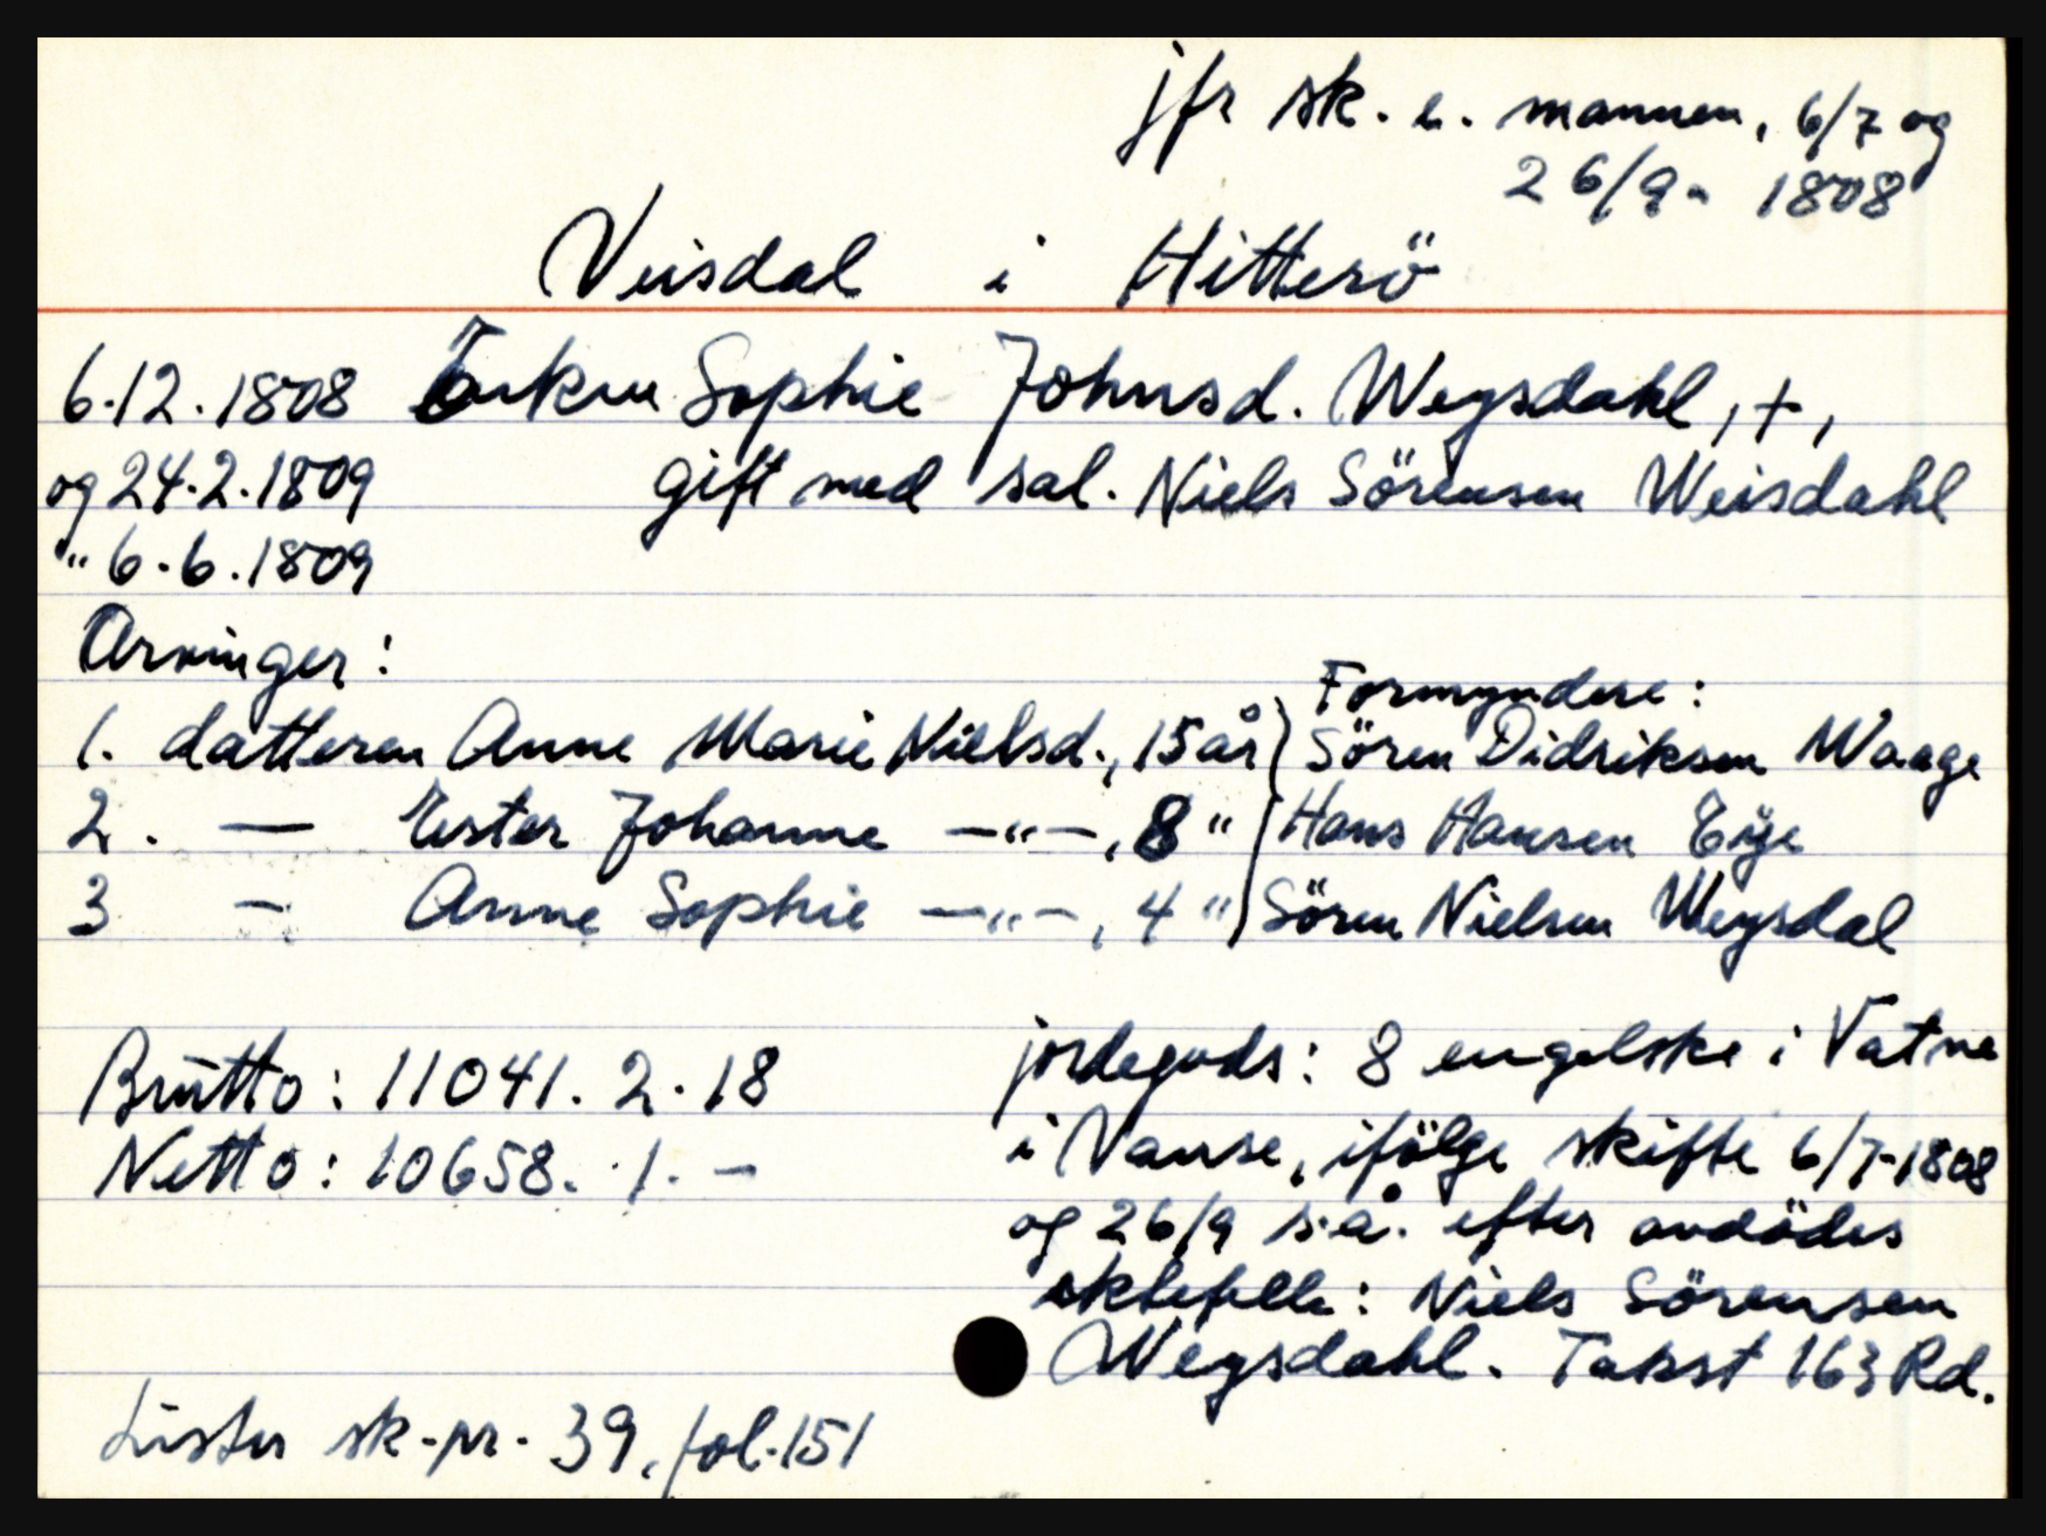 jfr sk. e. mannen, 6/7 og
26/9- 1808
Veisdal i Hitterö
6.12.1808 Enken Sophie Johnsd. Weysdahl, +,
og 24.2.1809 gift med sal. Niels Sörensen Weisdahl
" 6.6.1809
Arvinger:
Formyndere:
1. datteren Anne Marie Nielsd., 15 år) Sören Didriksen Waage
2. — Ester Johanne —"—, 8 " Hans Hansen Eye
3 — Anne Sophie —"—, 4 ") Sören Nielsen Weysdal
Brutto: 11041. 2. 18
Netto: 10658. 1. —
jordegods: 8 engelske i Vatne
i Vanse, ifölge skifte 6/7-1808
og 26/9 s.å. efter avdödes
ektefelle: Niels Sörensen
Weysdahl. Takst 163 Rd.
Lister sk.pr. 39, fol.151